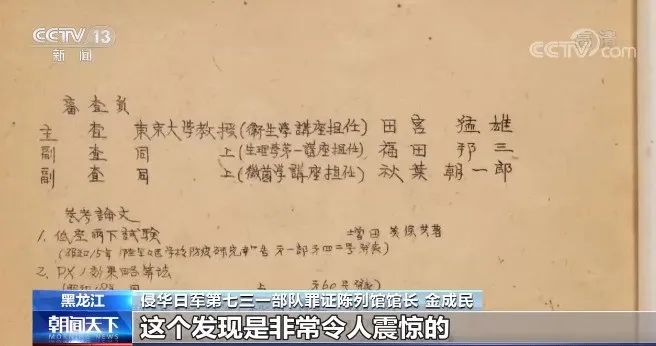 CCTV 13
新闻
CCTV.com
高清
審査員
主 査 東京大学教授(衛生学講座担任) 田宮 猛雄
副 査 同 上(生理学第一講座担任) 福田 邦三
副 査 同 上(黴菌学講座担任) 秋葉 朝一郎
参考論文
1. 低空雨下試験 増田 美保共著
2. PXノ効果略算法
黑龙江
侵华日军第七三一部队罪证陈列馆馆长 金成民
朝闻天下
这个发现是非常令人震惊的